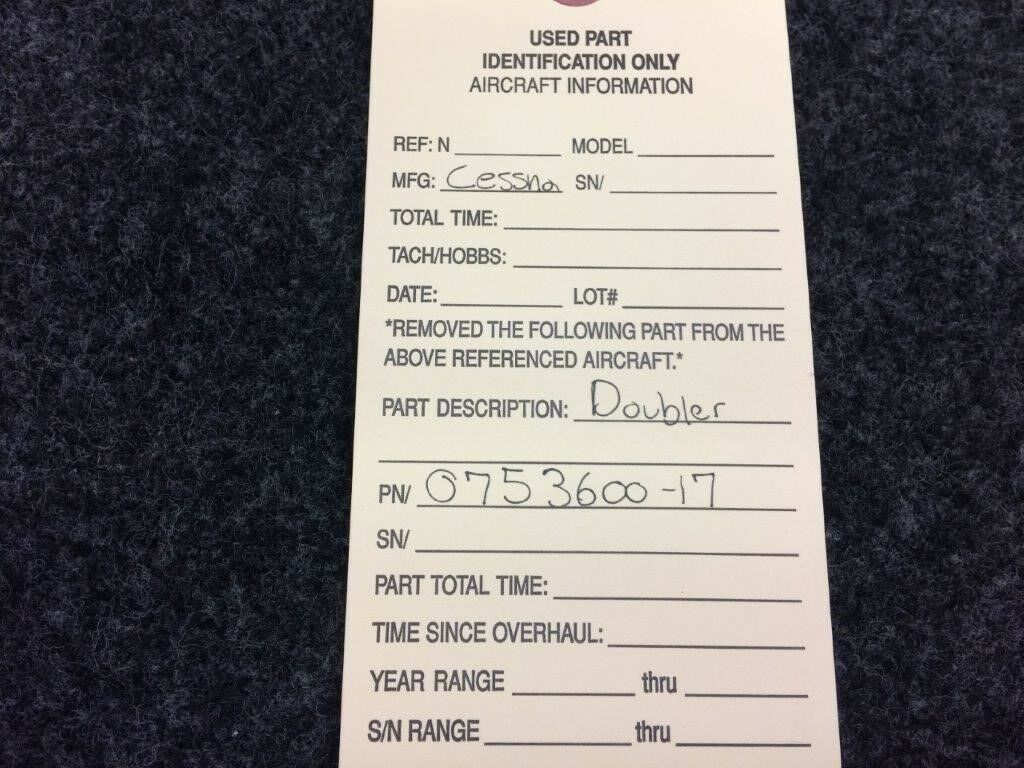 USED PART
IDENTIFICATION ONLY
AIRCRAFT INFORMATION
REF: N MODEL
MFG: Cessna SN/
TOTAL TIME:
TACH/HOBBS:
DATE: LOT#
*REMOVED THE FOLLOWING PART FROM THE
ABOVE REFERENCED AIRCRAFT.*
PART DESCRIPTION: Doubler
PN/ 0753600-17
SN/
PART TOTAL TIME:
TIME SINCE OVERHAUL:
YEAR RANGE thru
S/N RANGE thru